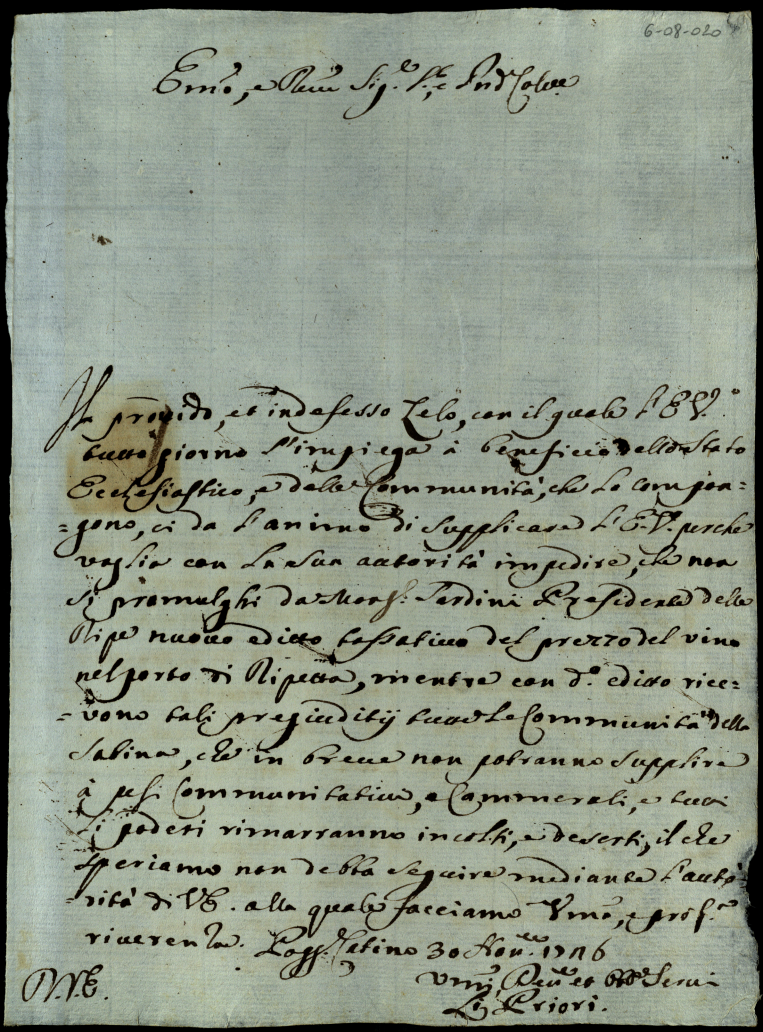 6-08-020
Em̃o, e Reũe Sig.e P.e, e Pñe Colẽe
Il provido, et indefesso Zelo, con il quale l'E.V.
tutto giorno s'impiega à beneficio dello Stato
Ecclesiastico, e delle Communità, che lo compon=
=gono, ci da l'animo di supplicare l'E.V. perche
voglia con la sua autorità impedire, che non
si promulghi da Mons.r Sardini Presidente delle
Ripe nuovo editto tassativo del prezzo del vino
nel porto di Ripetta, mentre con d.o editto rice=
=vono tali pregiuditij tutte le Communità della
Sabina, che in breve non potranno supplire
à pesi Communitativi, e Cammerali, e tutti
li poderi rimarranno incolti, e deserti, il che
speriamo non debba seguire mediante l'auto=
=rità di V.E. alla quale facciamo Um̃a, e prof.a
riverenza. Pogg. Catino 30 Nov.re
Um̃i, Dev.mi et Obb. Servi
Li Priori.
D.V.E.